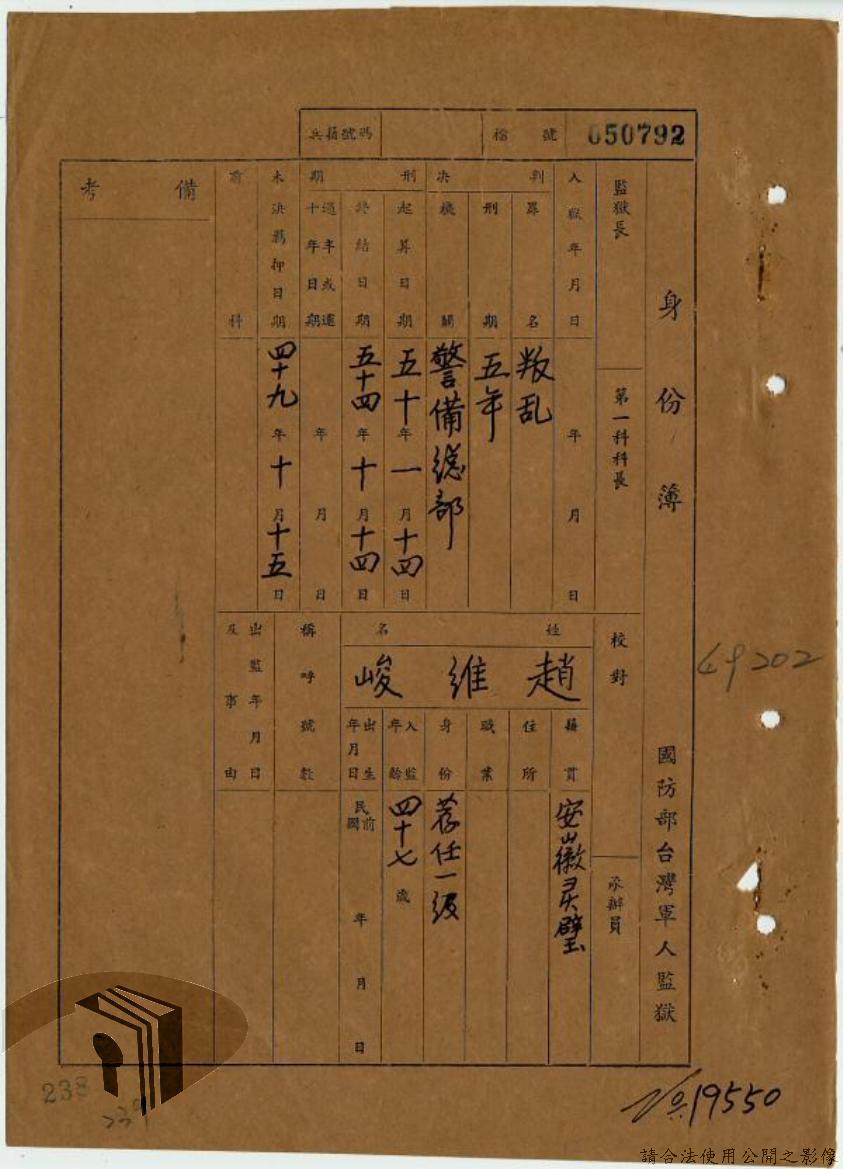 兵籍號碼
檔號 050792
身份簿 國防部台灣軍人監獄
監獄長
第一科科長
校對
承辦員
入獄年月日 年 月 日
判決
罪名 叛乱
刑期 五年
機關 警備總部
刑期
起算日期 五十年一月十四日
終結日期 五十四年十月十四日
年 月 日
未決羈押日期 四十九年十月十五日
前科
備考
姓名
趙維峻
籍貫 安徽灵璧
住所
職業
身份 荐任一級
入監年齡 四十七歲
出生年月日 民國前 年 月 日
稱呼號數
出監年月日及事由
49202
238
239
No.19550
請合法使用公開之影像